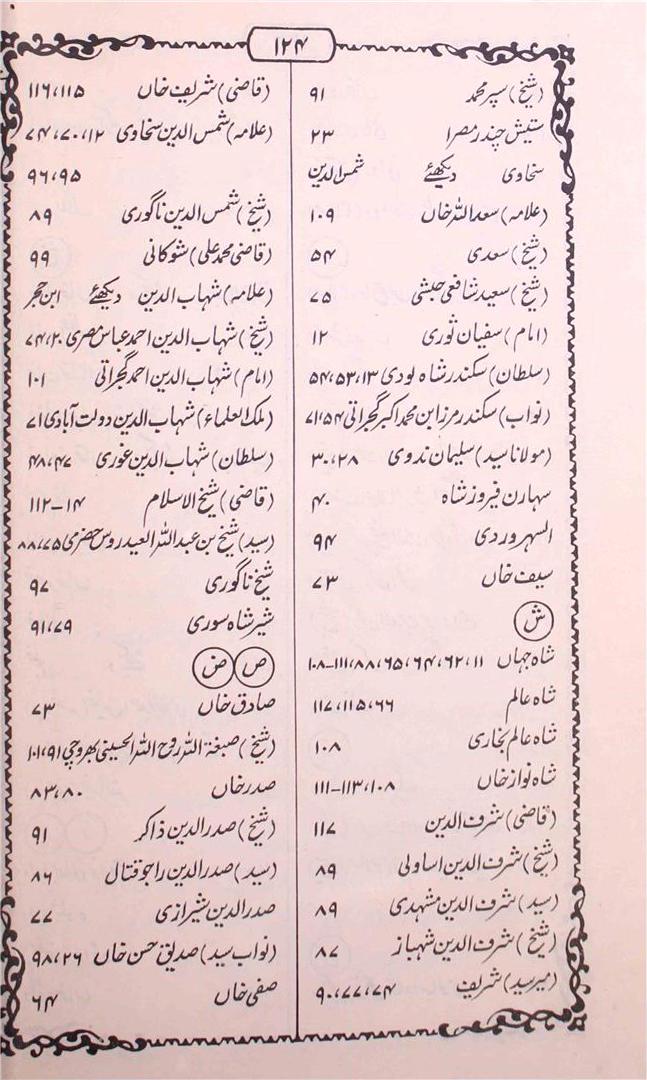 ۱۲۴
(شیخ) سپر محمد ۹۱
ستیش چندر مصرا ۲۳
سخاوی دیکھئے شمس الدین
(علامہ) سعد اللہ خاں ۱۰۹
(شیخ) سعدی ۵۴
(شیخ) سعید شافعی حبشی ۷۵
(امام) سفیان ثوری ۱۲
(سلطان) سکندر شاہ لودی ۱۳، ۵۳، ۵۴
(نواب) سکندر مرزا بن محمد اکبر گجراتی ۵۴، ۷۱
(مولانا سید) سلیمان ندوی ۲۸، ۳۰
سہارن فیروز شاہ ۴۰
السہروردی ۹۴
سیف خاں ۷۳
ش
شاہ جہاں ۱۱، ۶۲، ۶۴، ۶۵، ۸۸، ۱۱۱-۱۰۸
شاہ عالم ۶۶، ۱۱۵، ۱۱۷
شاہ عالم بخاری ۱۰۸
شاہ نواز خاں ۱۰۸، ۱۱۳-۱۱۱
(قاضی) شرف الدین ۱۱۷
(شیخ) شرف الدین اساولی ۸۹
(سید) شرف الدین مشہدی ۸۹
(شیخ) شرف الدین شہباز ۸۷
(میر سید) شریف ۷۴، ۷۷، ۹۰
(قاضی) شریف خاں ۱۱۵، ۱۱۶
(علامہ) شمس الدین سخاوی ۱۲، ۷۰، ۷۴
۹۵، ۹۶
(شیخ) شمس الدین ناگوری ۸۹
(قاضی محمد علی) شوکانی ۹۹
(علامہ) شہاب الدین دیکھئے ابن حجر
(شیخ) شہاب الدین احمد عباس مصری ۲۰، ۷۴
(امام) شہاب الدین احمد گجراتی ۱۰۱
(ملک العلماء) شہاب الدین دولت آبادی ۷۱
(سلطان) شہاب الدین غوری ۴۷، ۴۸
(قاضی) شیخ الاسلام ۱۴-۱۱۲
(سید) شیخ بن عبد اللہ العیدروس حضری ۷۵، ۸۸
شیخ ناگوری ۹۷
شیر شاہ سوری ۷۹، ۹۱
ص ض
صادق خاں ۷۳
(شیخ) صبغۃ اللہ روح اللہ الحسینی بھروچی ۹۱، ۱۰۱
صدر خاں ۸۰، ۸۳
(شیخ) صدر الدین ذاکر ۹۱
(سید) صدر الدین راجو قتال ۸۶
صدر الدین شیرازی ۷۷
(نواب سید) صدیق حسن خاں ۲۶، ۹۸
صفی خاں ۶۴